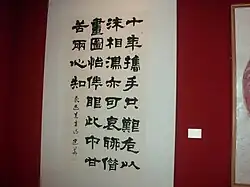 十年攜手共艱危以
沫相濡亦可哀聊借
畫圖怡倦眼此中甘
苦兩心知